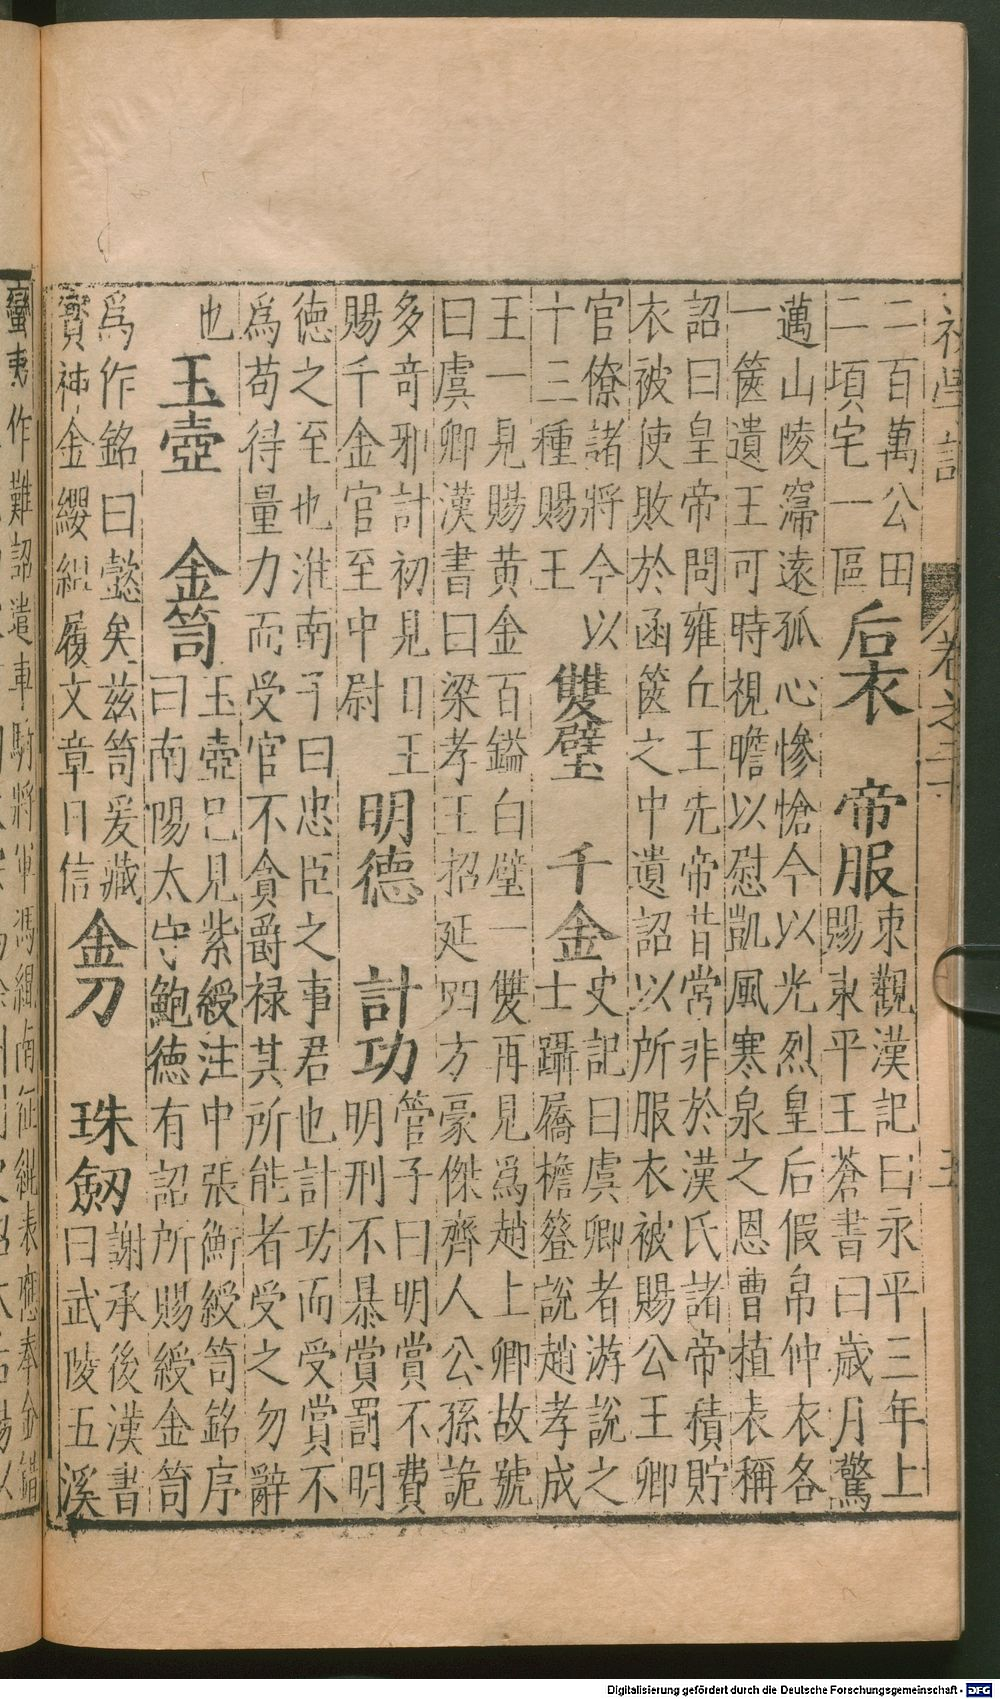 初學記 卷之二十 五
二百萬公田
二頃宅一區
后衣 帝服
東觀漢記曰永平三年上
賜東平王蒼書曰歲月驚
邁山陵寖遠孤心慘愴今以光烈皇后假帛仲衣各
一篋遺王可時視瞻以慰凱風寒泉之恩曹植表稱
詔曰皇帝問雍丘王先帝昔常非於漢氏諸帝積貯
衣被使敗於函篋之中遺詔以所服衣被賜公王卿
官僚諸將今以
十三種賜王
雙璧 千金
史記曰虞卿者游說之
士躡屩檐簦說趙孝成
王一見賜黄金百鎰白璧一雙再見爲趙上卿故號
曰虞卿漢書曰梁孝王招延四方豪傑齊人公孫詭
多奇邪計初見日王
賜千金官至中尉
明德 計功
管子曰明賞不費
明刑不暴賞罰明
德之至也淮南子曰忠臣之事君也計功而受賞不
爲苟得量力而受官不貪爵禄其所能者受之勿辭
也
玉壺 金笥
玉壺已見紫綬注中張衡綬笥銘序
曰南陽太守鮑德有詔所賜綬金笥
爲作銘曰懿矣兹笥爰藏
寶神金纓紃履文章日信
金刀 珠劒
謝承後漢書
曰武陵五溪
蠻夷作難詔遣車騎將軍馮緄南征緄表應奉金錯
Digitalisierung gefördert durch die Deutsche Forschungsgemeinschaft - DFG